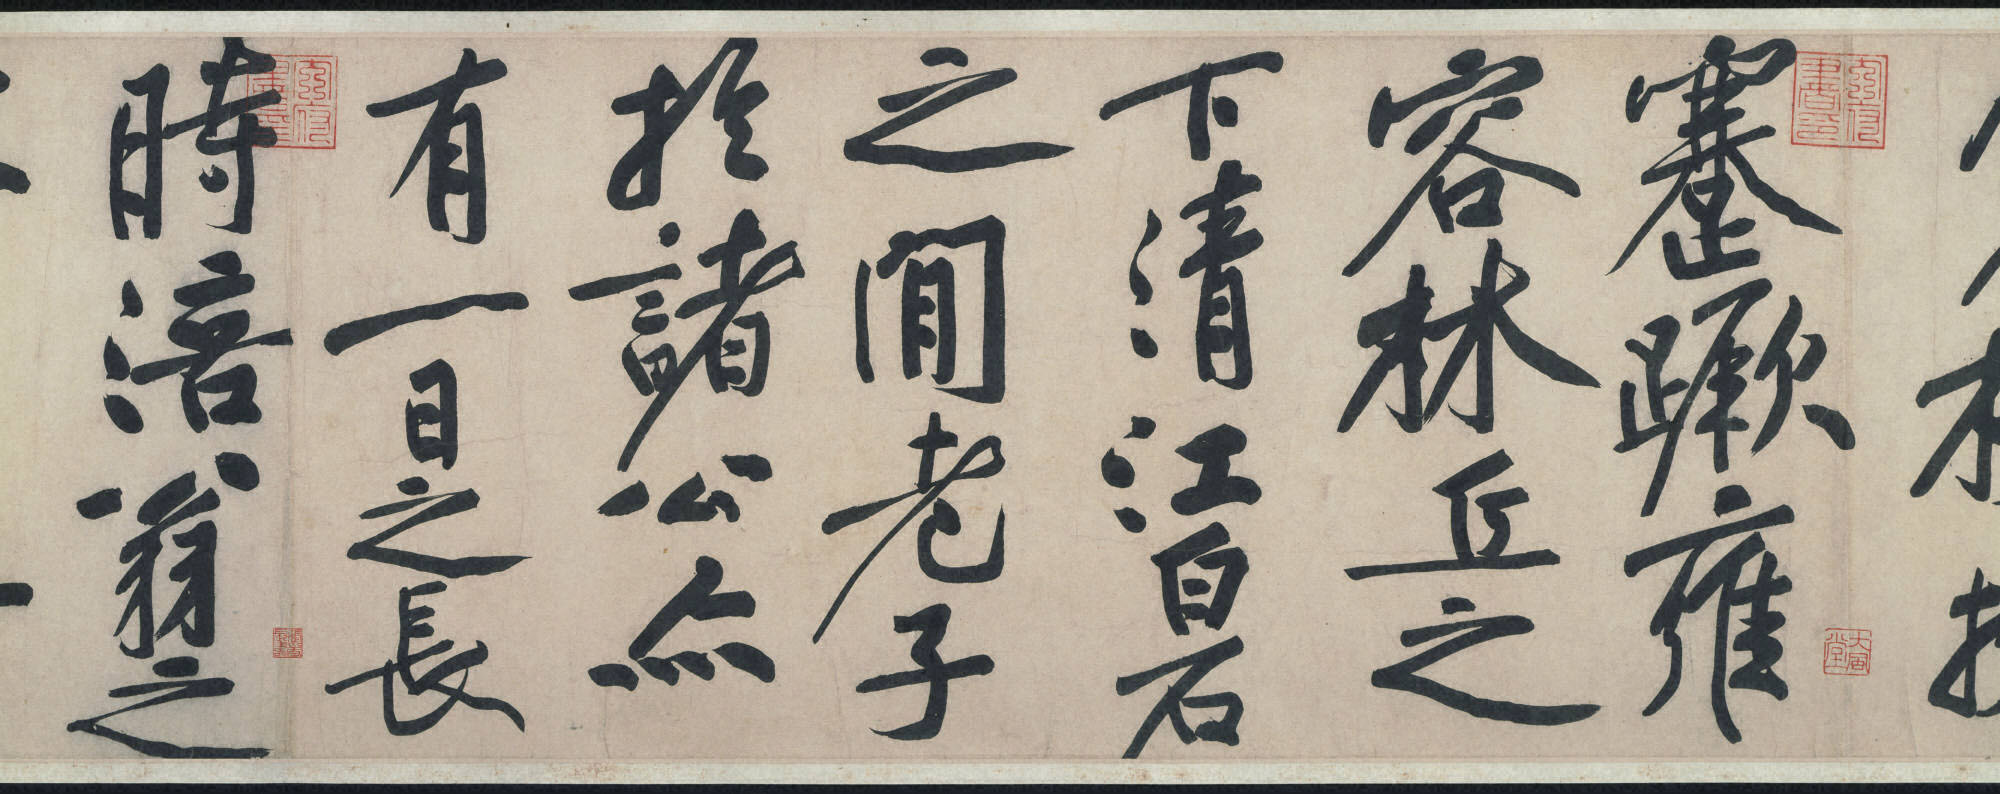 蹇蹶雍
容林丘之
下清江白石
之間老子
於諸公亦
有一日之長
時涪翁之
大風堂